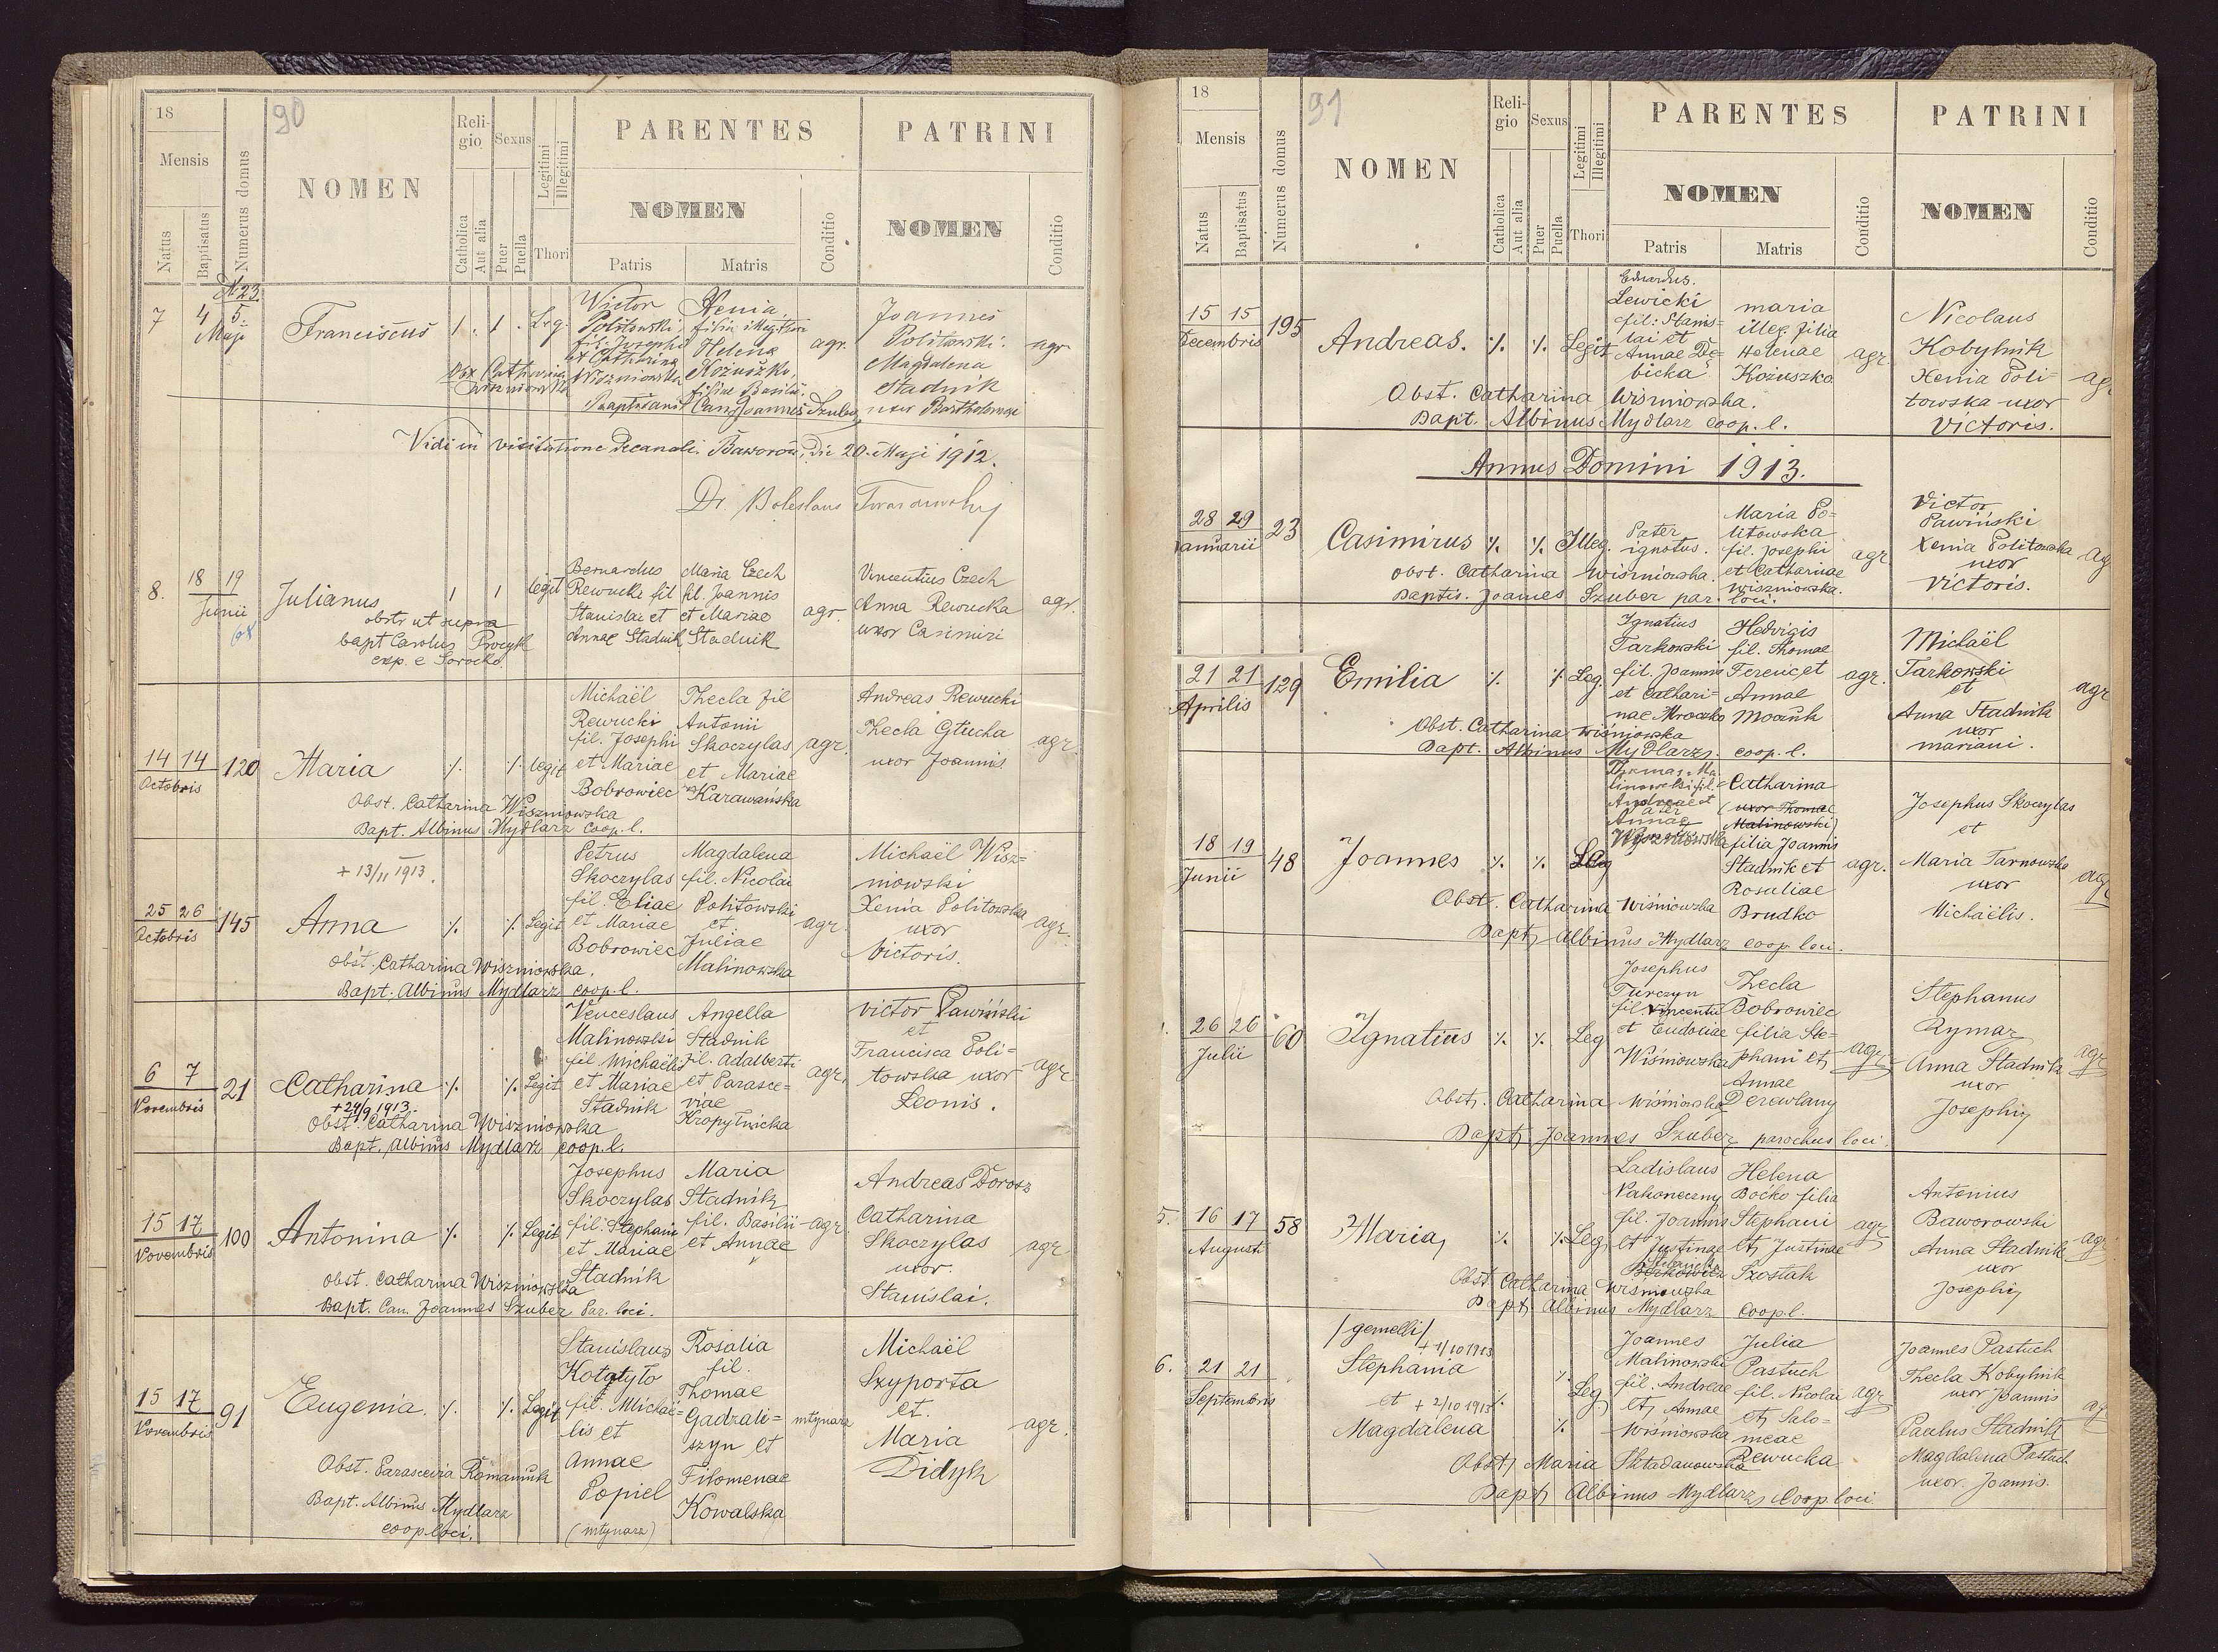 90
18
Mensis
Natus
Baptisatus
Numerus domus
NOMEN
Religio
Catholica
Aut alia
Sexus
Puer
Puella
Legitimi
Illegitimi
Thori
PARENTES
NOMEN
Patris
Matris
Conditio
PATRINI
NOMEN
Conditio
7
4 5.
Maji
N 23.
Franciscus
1.
1.
Leg.
Victor
Politowski
fil. Josephi
et Catharina
Wiszniowska
Xenia
filia illeg. thori
Helena
Kożuszko
filiae Basilii.
agr.
Joannes
Politowski.
Magdalena
Stadnik
uxor Bartholomaei
agr.
Obs. Catharina
Wiszniowska
Baptisavit Can. Joannes Szuber
Vidi in visitatione decanali. Baworów, die 20. Maji 1912.
Dr. Boleslaus Twardowski
8.
18 19
Junii
68
Julianus
1
1
legit
Bernardus
Rewucki fil
Stanislai et
Annae Stadnik
Maria Czech
fil. Joannis
et Mariae
Stadnik
agr.
Vincentius Czech
Anna Rewucka
uxor Casimiri
agr.
obstr ut supra
bapt Carolus Procyk
exp. e Sorocko
14 14
Octobris
120
Maria
1.
1.
legit
Michaël
Rewucki
fil. Josephi
et Mariae
Bobrowiec
Thecla fil
Antonii
Skoczylas
et Mariae
Karawańska
agr.
Andreas Rewucki
Thecla Głucha
uxor Joannis
agr.
Obst. Catharina Wiszniowska
Bapt. Albinus Mydlarz coop. l.
+ 13/II 1913.
25 26
Octobris
145
Anna
1.
1.
Legit
Petrus
Skoczylas
fil. Eliae
et Mariae
Bobrowiec
Magdalena
fil. Nicolai
Politowski
et
Juliae
Malinowska
agr.
Michaël Wisz=
niowski
Xenia Politowska
uxor
Victoris.
agr.
Obst. Catharina Wiszniowska.
Bapt. Albinus Mydlarz coop. l.
6 7
Novembris
21
Catharina
+24/9 1913
1.
1.
Legit
Venceslaus
Malinowski
fil Michaëlis
et Mariae
Stadnik
Angella
Stadnik
fil. Adalberti
et Parasce=
viae
Kropylnicka
agr.
Victor Pawiński
et
Francisca Poli=
towska uxor
Leonis.
agr.
Obst. Catharina Wiszniowska
Bapt. Albinus Mydlarz coop. l.
15 17
Novembris
100
Antonina
1.
1.
Legit
Josephus
Skoczylas
fil. Stephani
et Mariae
Stadnik
Maria
Stadnik
fil. Basilii
et Annae
agr.
Andreas Dorosz
Catharina
Skoczylas
uxor.
Stanislai.
agr
Obst. Catharina Wiszniowska
Bapt. Can. Joannes Szuber Par. loci.
15 17
Novembris
91
Eugenia.
1.
1.
Legit
Stanislaus
Kotatyło
fil. Michaë=
lis et
Annae
Popiel
(młynarz)
Rosalia
fil.
Thomae
Gadzali=
szyn et
Filomenae
Kowalska
młynarz
Michaël
Szyporta
et.
Maria
Didyk
agr.
Obst. Parascevia Romaniuk
Bapt. Albinus Mydlarz
coop. loci.
91
18
Mensis
Natus
Baptisatus
Numerus domus
NOMEN
Religio
Catholica
Aut alia
Sexus
Puer
Puella
Legitimi
Illegitimi
Thori
PARENTES
NOMEN
Patris
Matris
Conditio
PATRINI
NOMEN
Conditio
15 15
Decembris
195
Andreas.
1.
1.
Legit
Eduardus.
Lewicki
fil: Stanis=
lai et
Annae De=
bicka
Maria
illeg. filia
Helenae
Kożuszko
agr.
Nicolaus
Kobylnik
Xenia Poli=
towska uxor
Victoris.
agr
Obst. Catharina Wiszniowska.
Bapt. Albinus Mydlarz coop. l.
Annus Domini 1913.
28 29
Januarii
23
Casimirus
1.
1.
Illeg.
Pater
ignotus.
Maria Po=
litowska
fil. Josephi
et Catharinae
Wiszniowska.
agr
Victor
Pawiński
Xenia Politowska
uxor
Victoris.
ag
Obst. Catharina Wiszniowska.
Baptis. Joannes Szuber par. loci.
21 21
Aprilis
129
Emilia
1.
1.
Leg.
Ignatius
Tarkowski
fil. Joannis
et Cathari=
nae Mroczko
Hedvigis
fil. Thomae
Ferenc et
Annae
agr.
Michaël
Tarkowski
et
Anna Stadnik
uxor
Mariani.
agr
Obst. Catharina Wiśniowska
Bapt. Albinus Mydlarz, coop. l.
18 19
Junii
48
Joannes
1.
1.
Leg
Thomas Ma
linowski fil.
Andreae et
Pater
Annae
Catharina
(uxor Thomae
Malinowski)
filia Joannis
Stadnik et
Rosaliae
Brudko
agr.
Josephus Skoczylas
et
Maria Tarnowska
uxor
Michaëlis.
agr
Obst. Catharina Wiśniowska
Bapt, Albinus Mydlarz coop loci.
26 26
Julii
60
Ignatius
1.
1.
Leg
Josephus
Turczyn
fil. Vincentii
et Eudociae
Wiśniowska
Thecla
Bobrowiec
filia Ste=
phani et
Annae
Derewlany
agr
Stephanus
Rymar
Anna Stadnik
uxor
Josephi
agr
Obst. Catharina Wiśniowska
Bapt, Joannes Szuber, parochus loci.
5.
16 17
Augusti
58
Maria
1.
1.
Leg
Ladislaus
Nakoneczny
fil. Joannis
et Justinae
Helena
Boćko filia
Stephani
et Justinae
Szostak
agr
Antonius
Baworowski
Anna Stadnik
uxor
Josephi
agr
Obst. Catharina Wiśniowska
Bapt, Albinus Mydlarz coop l.
6.
21 21
Septembris
/gemelli/
+ 1/10 1913
Stephania
et + 2/10 1913
Magdalena
1.
1.
1.
Leg
Joannes
Malinowski
fil. Andreae
et Annae
Wiśniowska
Julia
Pastuch
fil. Nicolai
et Salo=
meae
Rewucka
agr
Joannes Pastuch
Thecla Kobylnik
uxor Joannis
Paulus Stadnik
Magdalena Pastuch
uxor. Joannis.
ag
Obst, Maria Składanowska
Bapt, Albinus Mydlarz, Coop. loci.